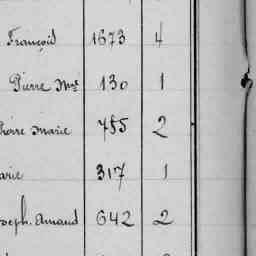 François 1673 4
Pierre Mie 130 1
Pierre Marie 755 2
arie 317 1
oseph. Amand 642 2